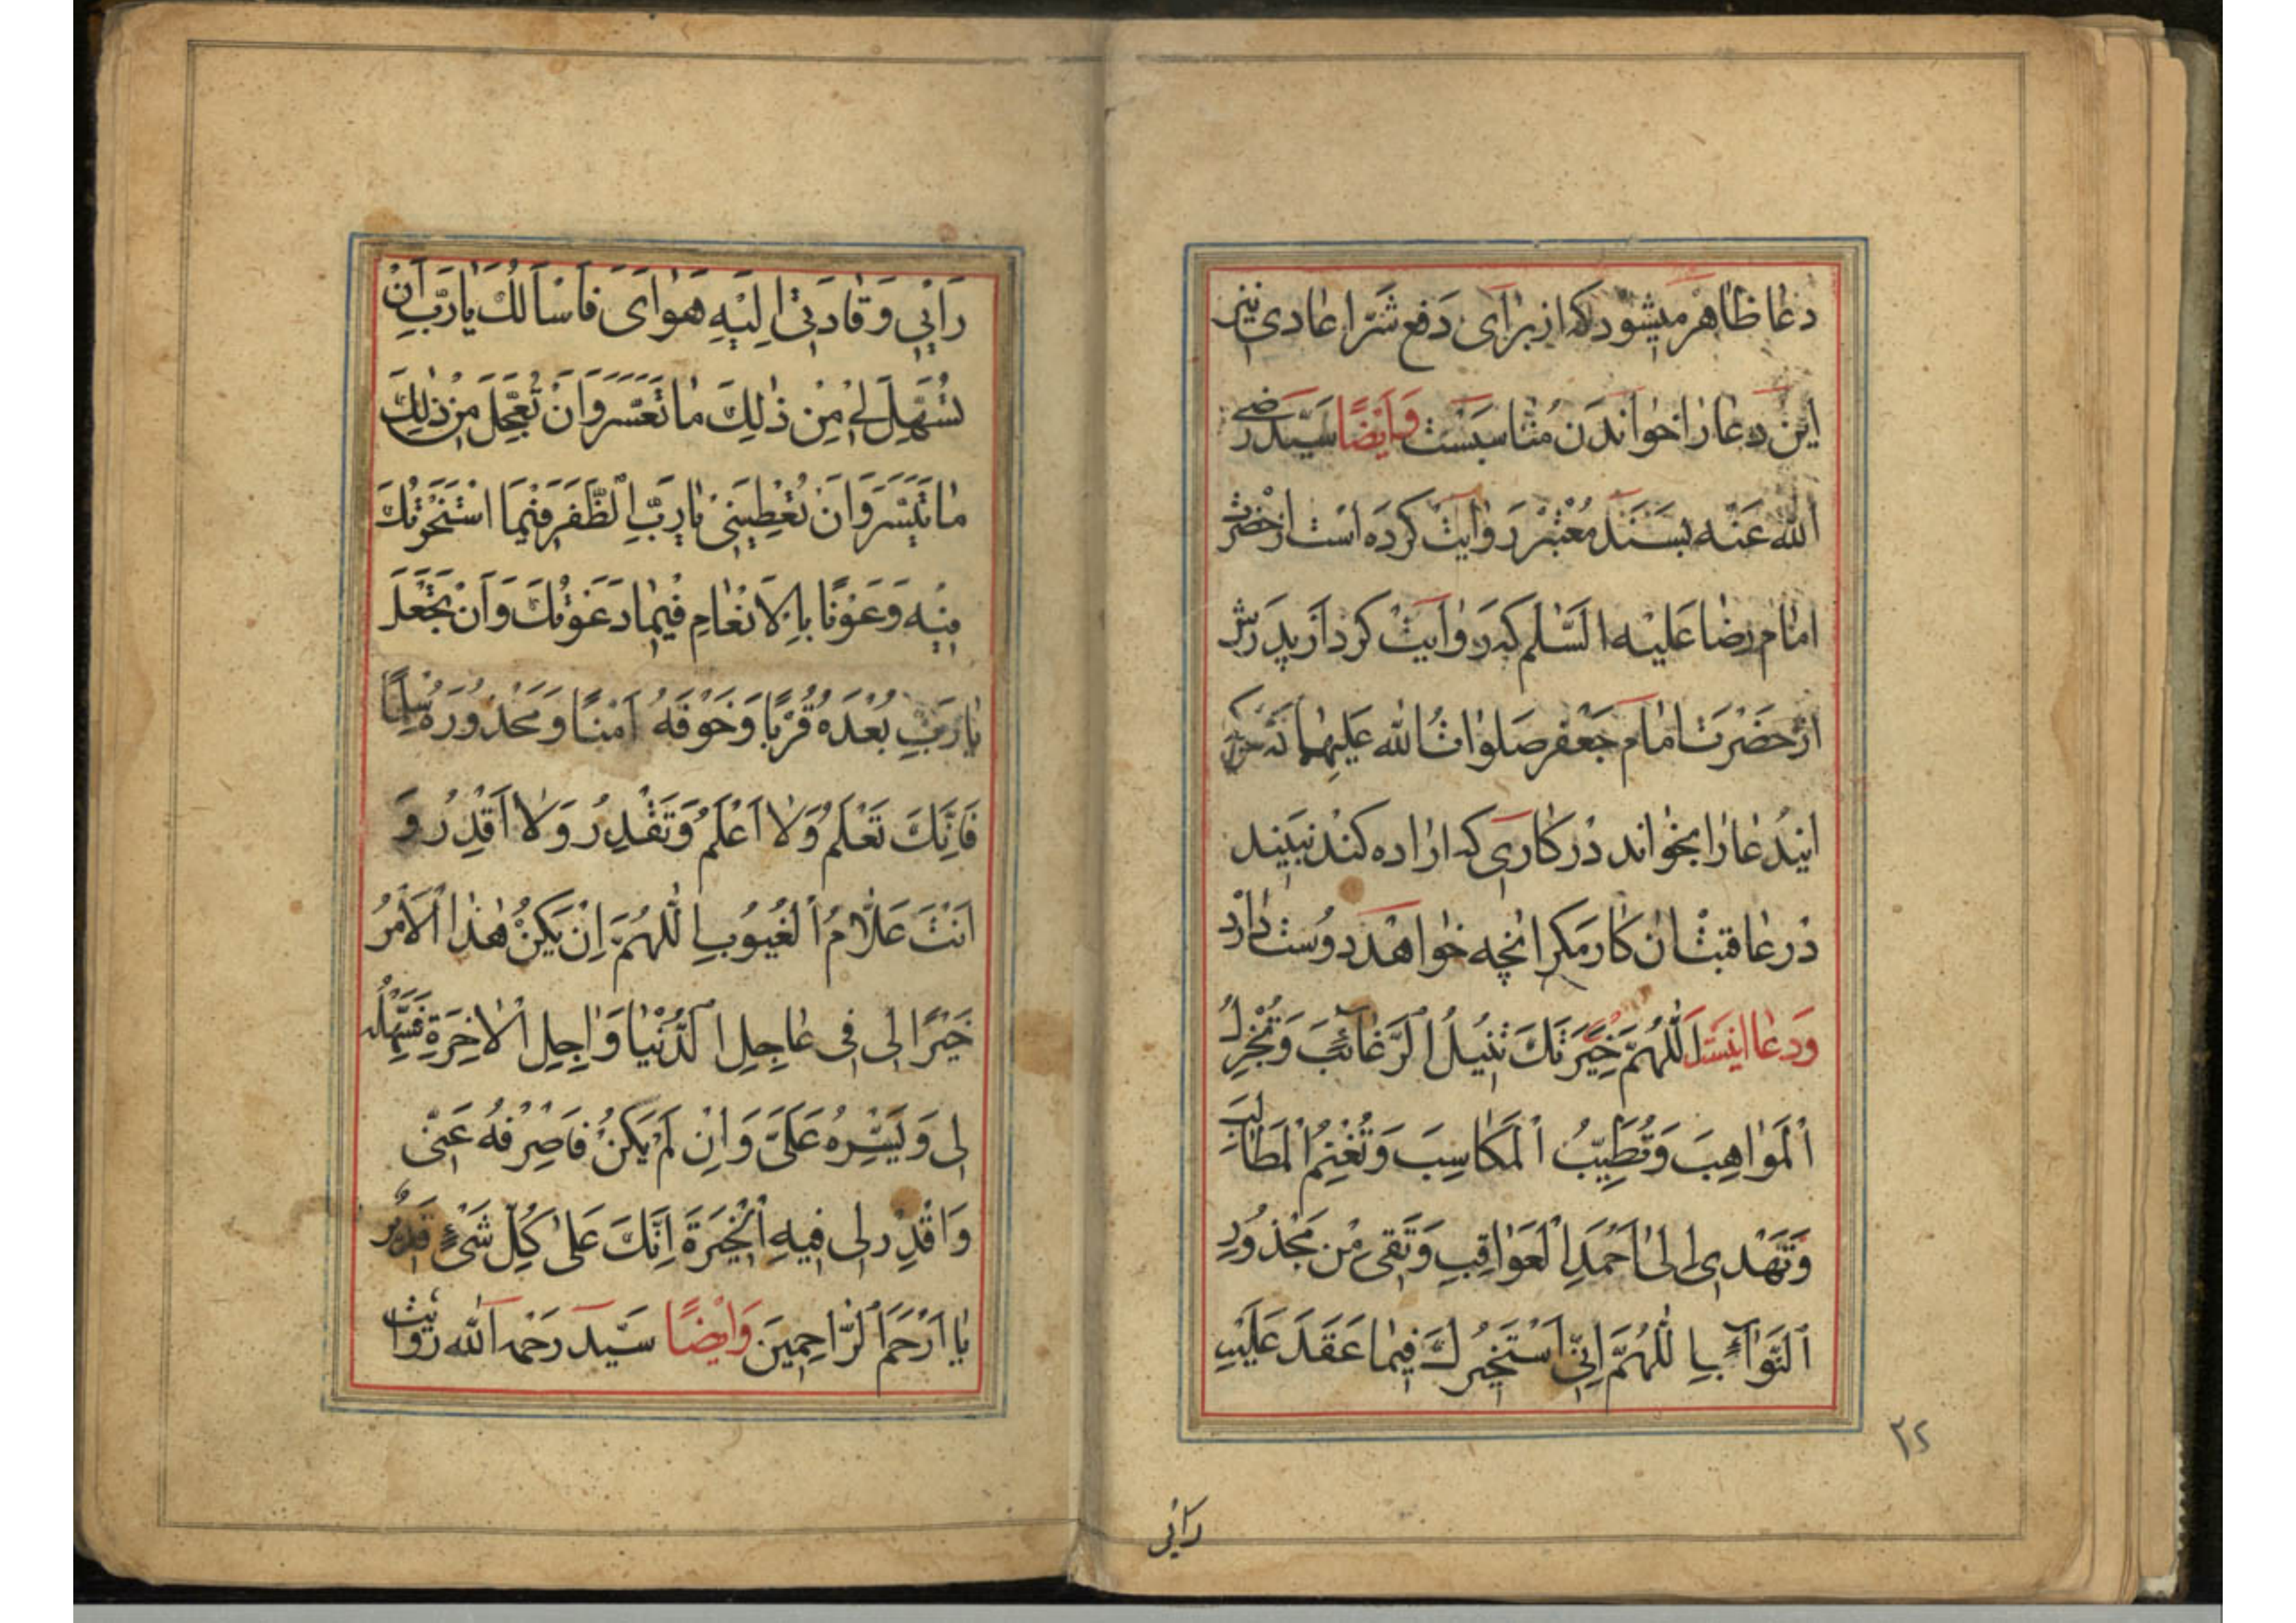 دعا ظاهر میشود که از برای دفع شرّ اعادی نیز
این دعا را خواندن مناسبست وَایضًا سیّد رضی
الله عنه بسند معتبر روایت کرده است از حضرت
امام رضا علیه السّلم که روایت کرد از پدرش
از حضرت امام جعفر صلوات الله علیهما که هرکه
ایندعا را بخواند در کاری که اراده کند نبیند
در عاقبت ان کار مکر انچه خواهد دوست دارد
وَدعا اینست اَللّٰهُمَّ خِیَرَتَكَ تُنیلُ الرَّغائِبَ وَتُجْزِلُ
اَلْمَواهِبَ وَتُطَیِّبُ اَلْمَکاسِبَ وَتُغْنِمُ الْمَطالِبَ
وَتَهْدی اِلیٰ اَحْمَدِ الْعَواقِبِ وَتَقی مِنْ مَحْذُورِ
اَلنَّوآئِبِ اللّٰهُمَّ اِنّی اَسْتَخیرُكَ فیما عَقَدَ عَلَیْهِ
٢٤
رَاْیی
رَاْیی وَقادَنی اِلَیْهِ هَوایَ فَاَسْاَلُكَ یارَبِّ اَنْ
تُسَهِّلَ لی مِنْ ذٰلِكَ ما تَعَسَّرَ وَاَنْ تُعَجِّلَ مِنْ ذٰلِكَ
ما تَیَسَّرَ وَاَنْ تُعْطِیَنی یارَبِّ الظَّفَرَ فیمَا اسْتَخَرْتُكَ
فیهِ وَعَوْنًا بِالْاِنْعامِ فیما دَعَوْتُكَ وَاَنْ تَجْعَلَ
یارَبِّ بُعْدَهُ قُرْبًا وَخَوْفَهُ اَمْنًا وَمَحْذُورَهُ سِلْمًا
فَاِنَّكَ تَعْلَمُ وَلا اَعْلَمُ وَتَقْدِرُ وَلا اَقْدِرُ وَ
اَنْتَ عَلّامُ الْغُیُوبِ اللّٰهُمَّ اِنْ یَکُنْ هٰذَا الْاَمْرُ
خَیْرًا لی فی عاجِلِ الدُّنْیا وَاٰجِلِ الْاٰخِرَةِ فَسَهِّلْهُ
لی وَیَسِّرْهُ عَلَیَّ وَاِنْ لَمْ یَکُنْ فَاصْرِفْهُ عَنّی
وَاقْدِرْ لی فیهِ الْخِیَرَةَ اِنَّكَ عَلیٰ کُلِّ شَیْءٍ قَدیرٌ
یا اَرْحَمَ الرّاحِمینَ وَایْضًا سیّد رَحمه الله روایت